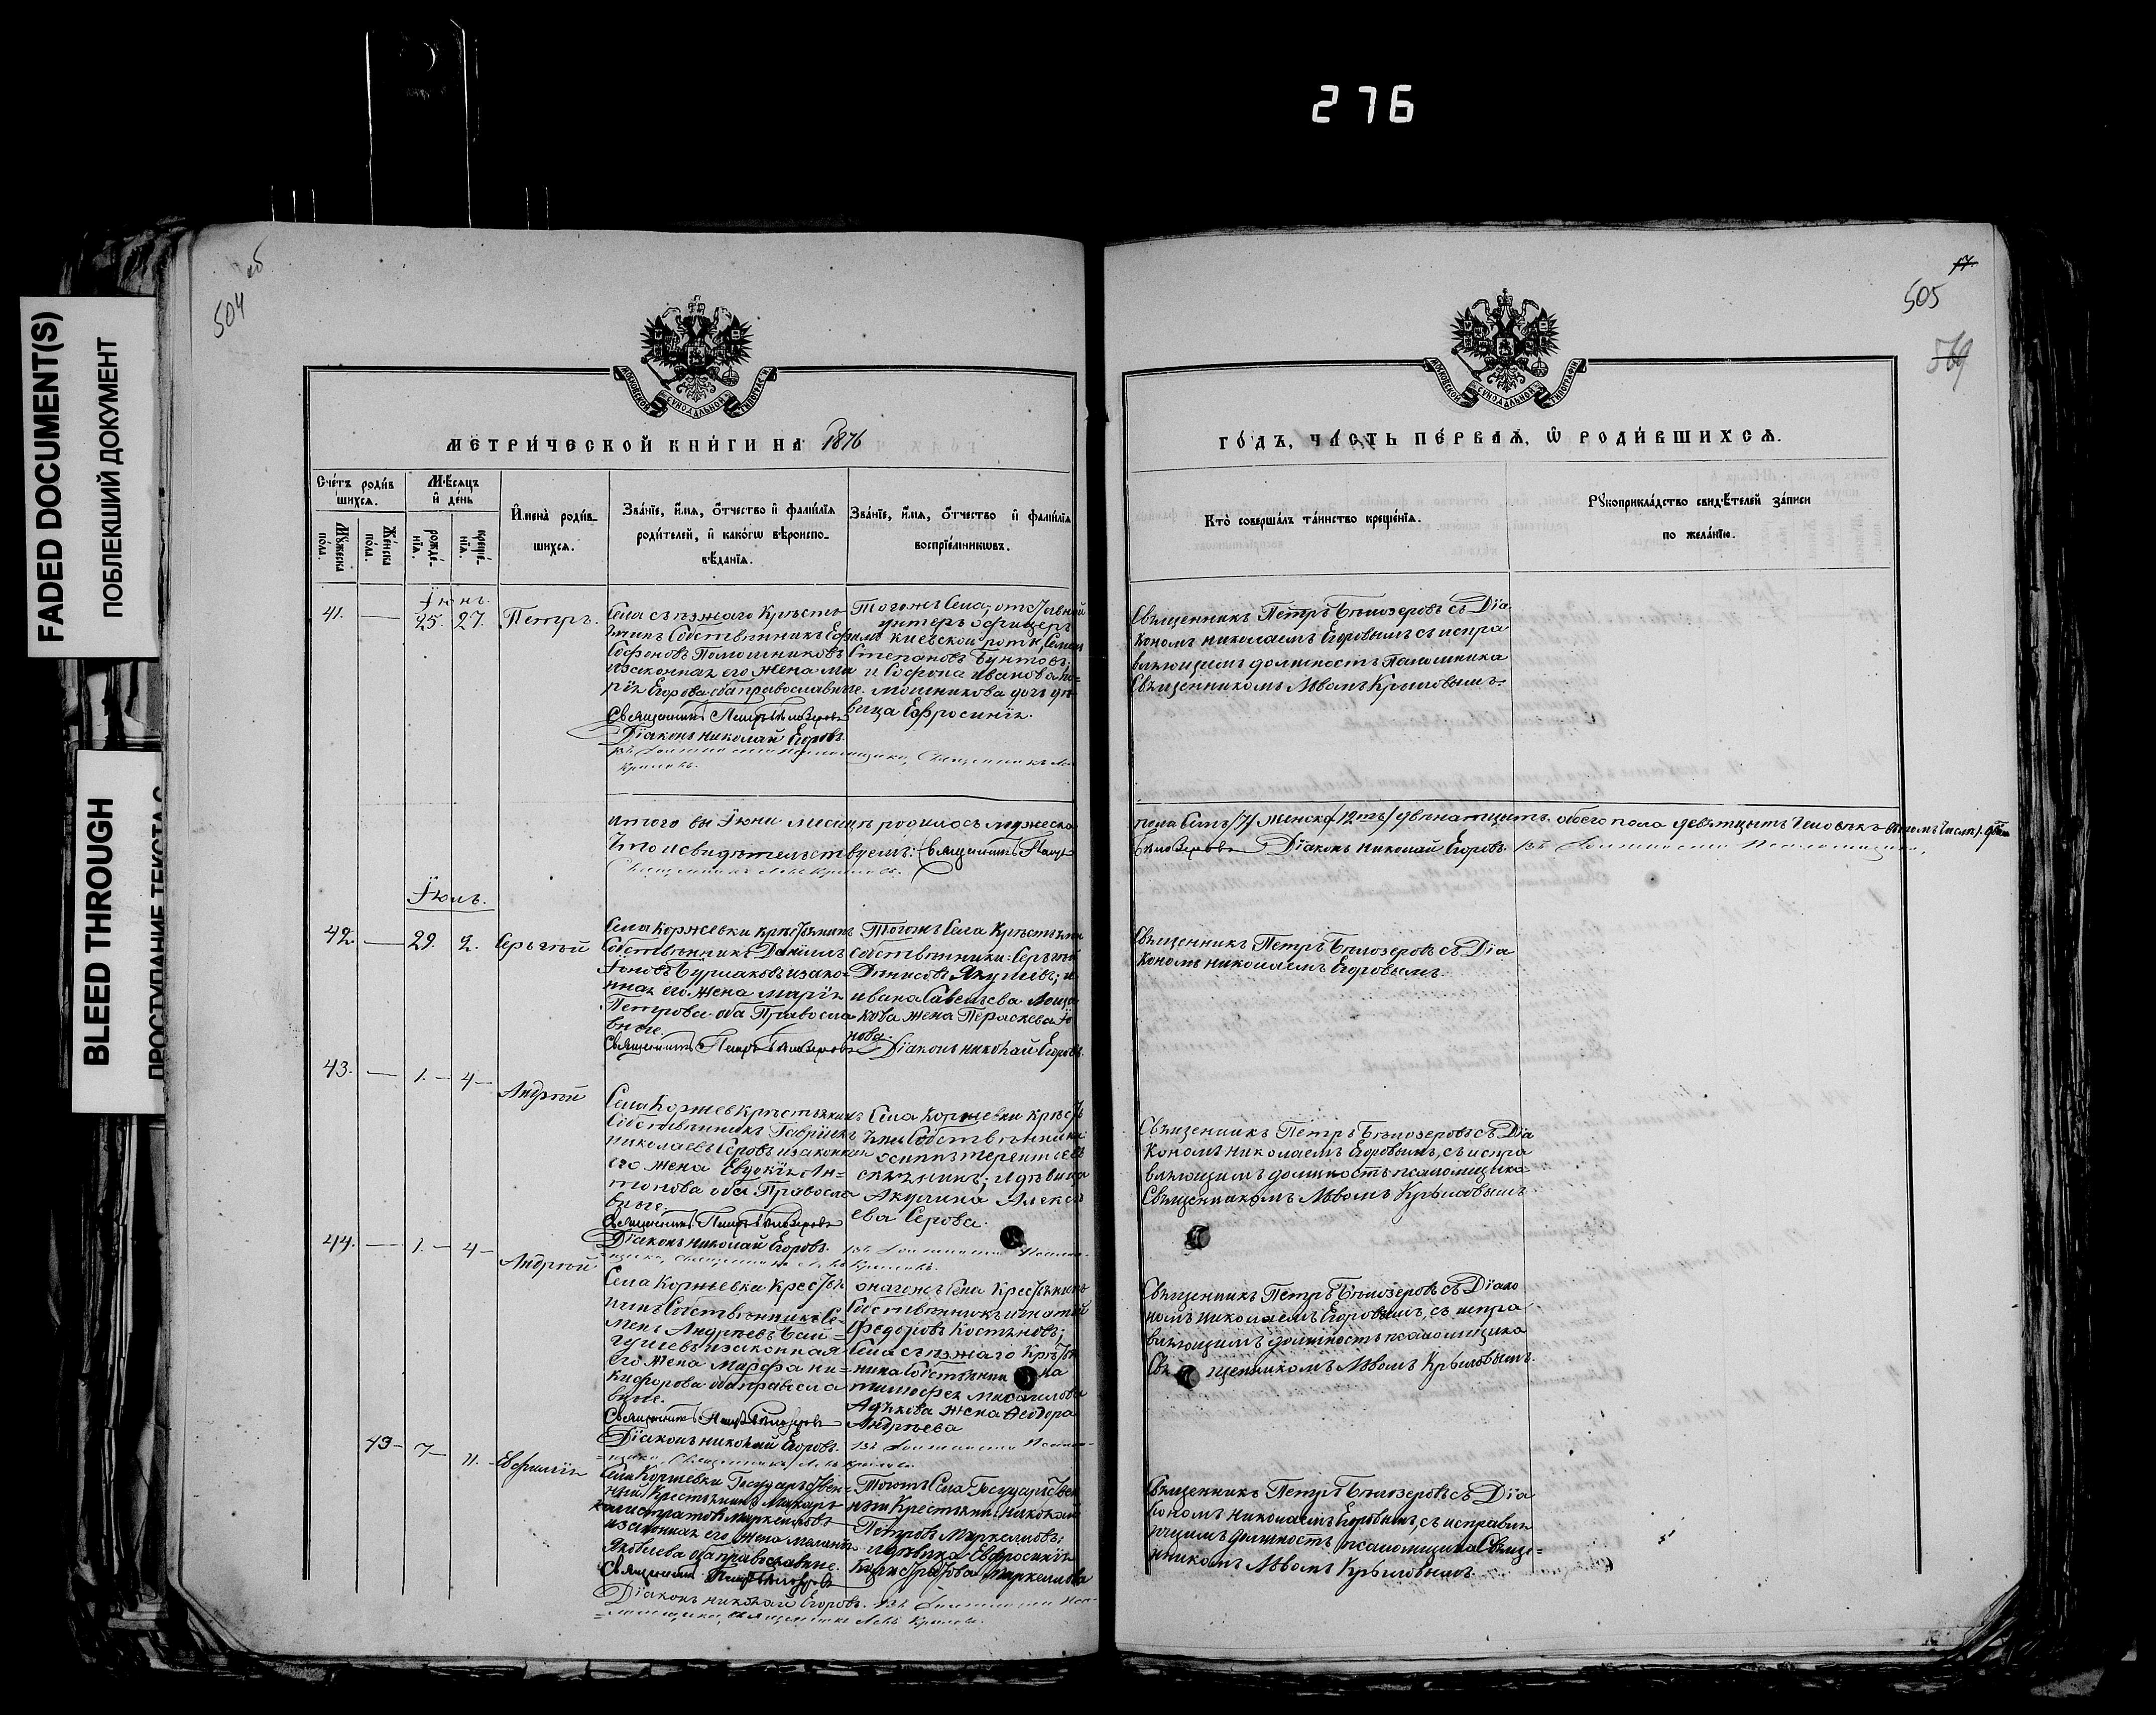 276
FADED DOCUMENT(S)
ПОБЛЕКШИЙ ДОКУМЕНТ
BLEED THROUGH
ПРОСТУПАНИЕ ТЕКСТА С
504 об
МЕТРИ́ЧЕСКОЙ КНИ́ГИ НА 1876
Сче́тъ роди́в
шихсѧ.
Мѣ́сѧцъ
и҆ де́нь
Мꙋ́жеска
по́ла.
Же́нска
по́ла.
рожде́-
нїѧ.
креще́-
нїѧ.
И҆мена̀ роди́в-
шихсѧ.
Зва́нїе, и҆́мѧ, ѻ҆́тчество и҆ фамѝлїѧ
роди́телей, и҆ како́гѡ вѣроиспо-
вѣ́данїѧ.
Зва́нїе, и҆́мѧ, ѻ҆́тчество и҆ фамѝлїѧ
воспрїе́мникѡвъ.
Їюнь.
41. — 25. 27. Петръ.
Села съѣзжаго Кресть
Собственникъ Ефимъ
Софоновъ Помошниковъ
изаконная его жена Ма
рїя Егорова оба православные.
Священникъ Петръ Бѣлозеровъ
Дїаконъ николай Егоровъ.
Тогожъ Села; отставной
унтеръ офицеръ
киевской роты, Семенъ
Степановъ Бунтовъ;
и Софона иванова По-
мошникова дочь дѣ-
вица Ефросинїя.
итого вы Їюни месяцѣ родилось мужеска
Что и свидѣтельствуемъ: Священникъ Петръ
Священникъ Левъ Крыловъ.
Їюль.
42. — 29. 2. Сергѣй
Села Коржевки крестьянинъ
Собственникъ Данїилъ
Їоновъ Бурлаковъ изако-
нная его жена марїя
Петрова оба Правосла
вные.
Священникъ Петръ Бѣлозеровъ Дїаконъ николай Егоровъ.
Тогожъ Села Крестьяни
собственники: Сергѣй
Денисовъ Якушевъ; и
ивана Савельева Лоща
кова жена Параскева Їо
нова.
43. — 1. — 4 — Андрѣй
Села Коржевк крестьянинъ
Собственникъ Гаврїилъ
николаевъ Серовъ изаконная
его жена Евдокїя Ан-
тонова оба Правосла
вные.
Священникъ Петръ Бѣлозеровъ
Дїаконъ николай Егоровъ.
Села Коржевки крест
яни Собственники
осипъ терентьевъ
и дѣвица
Акулина Алексѣ
ева Серова.
44. — 1. — 4 — Андрѣй
Села Коржевки Крестья
нинъ Собственникъ Се-
менъ Андрѣевъ
изаконная
его жена Марфа ни-
кифорова оба правосла
вные.
Священникъ Петръ Бѣлозеровъ
Дїаконъ николай Егоровъ.
Села Крестьянинъ
Собственникъ игнатїй
Федоровъ Костяновъ;
Села съѣзжаго Крестья
нина Собственника
тимофея михаилова
жена Феодора
Андрѣева
43 — 7 — 11. — Евфимїя
Села Коржевки Государствен-
ный Крестьянинъ Макаръ
Калистратовъ Маркеловъ
изаконная его жена меланїя
Яковлева оба православные.
Священникъ Петръ Бѣлозеровъ
Дїаконъ николай Егоровъ.
Тогожъ Села Государствен
ный Крестьянинъ николай
Петровъ Маркеловъ;
и дѣвица Евфросинїя
Калистратова Маркелова
17.
505
569
ГО́ДЪ, ЧА́СТЬ ПЕ́РВАѦ, Ѡ҆ РОДИ́ВШИХСѦ.
Кто̀ соверша́лъ та́инство креще́нїѧ.
Рꙋкоприкла́дство свидѣ́телей за́писи
по жела́нїю.
Священникъ Петръ Бѣлозеровъ съ Дїа
кономъ николаемъ Егоровымъ съ испра
вляющимъ должность
Священникомъ Львомъ Крыловымъ.
пола Семь /7/ женска /12ть/ двѣнатцать, обоего пола девятцать Человѣкъ
Бѣлозеровъ Дїаконъ николай Егоровъ.
Священникъ Петръ Бѣлозеровъ съ Дїа
кономъ николаемъ Егоровымъ.
Священникъ Петръ Бѣлозеровъ съ Дїа
кономъ николаемъ Егоровымъ, съ испра
вляющимъ должность псаломщика
Священникомъ Львомъ Крыловымъ
Священникъ Петръ Бѣлозеровъ съ Дїако
номъ николаемъ Егоровымъ, съ испра
вляющимъ должность псаломщика
Священникомъ Львомъ Крыловымъ.
Священникъ Петръ Бѣлозеровъ съ Дїа
кономъ николаемъ Егоровымъ, съ исправля
ющимъ должность псаломщика Свяще-
нникомъ Львомъ Крыловымъ.